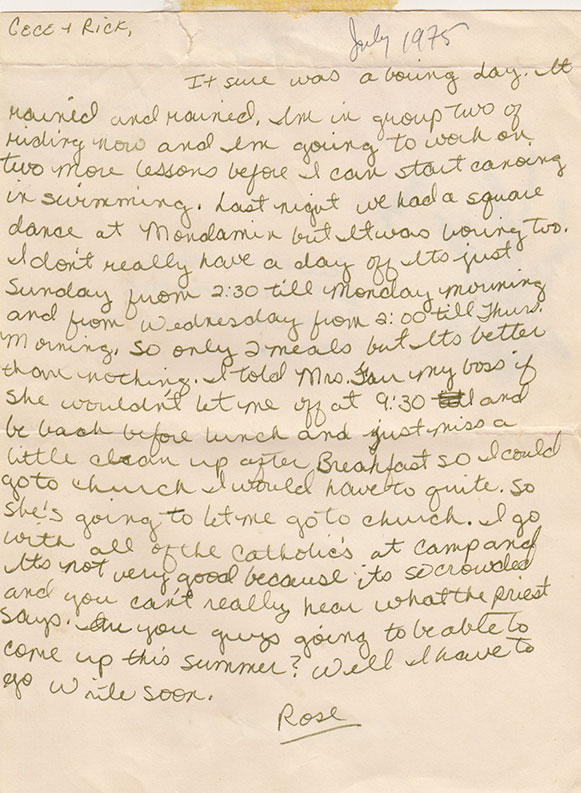 Cece + Rick,
July 1975
It sure was a boring day. It
rained and rained. Im in group two of
riding now and Im going to work on
two more lessons before I can start canoing
in swimming. Last night we had a square
dance at Mondamin but It was boring too.
I don't really have a day off Its just
Sunday from 2:30 till Monday morning
and from Wednesday from 2:00 till Thurs.
Morning. So only 2 meals but Its better
than nothing. I told Mrs. my boss if
she wouldn't let me off at 9:30 and
be back before lunch and just miss a
little clean up after Breakfast so I could
go to church I would have to quite. So
she's going to let me go to church. I go
with all of the Catholic's at camp and
Its not very good because its so crowded
and you can't really hear what the priest
says. Are you guys going to be able to
come up this summer? Well I have to
go write soon.
Rose